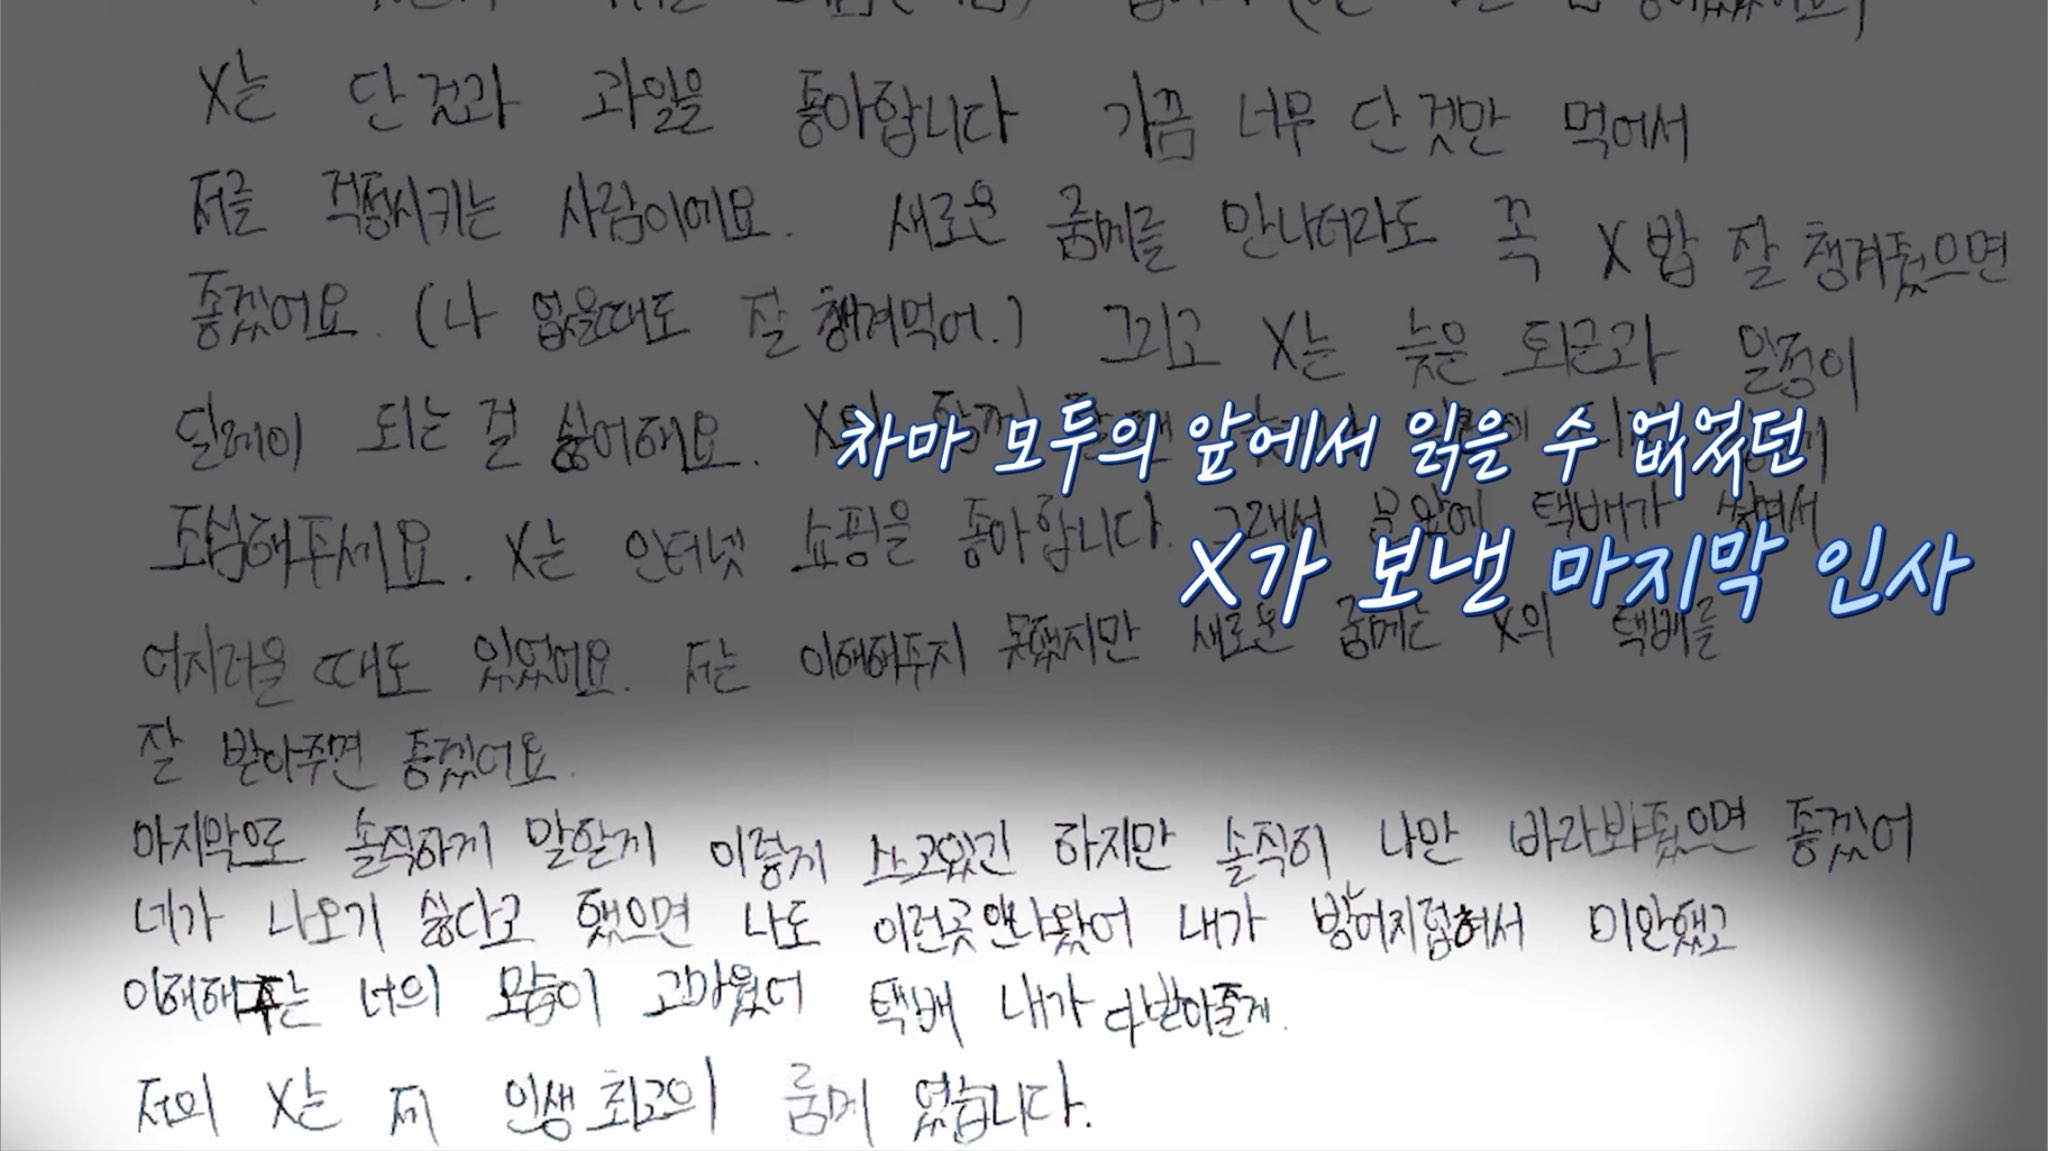 X는 단것과 과일을 좋아합니다 가끔 너무 단것만 먹어서
저를 걱정시키는 사람이에요. 새로운 룸메를 만나더라도 꼭 X밥 잘 챙겨줬으면
좋겠어요. (나 없을때도 잘 챙겨먹어.) 그리고 X는 늦은 퇴근과 일정이
딜레이 되는 걸 싫어해요.
차마 모두의 앞에서 읽을 수 없었던
조심해주세요. X는 인터넷 쇼핑을 좋아합니다. 그래서 문앞에 택배가 쌓여서
X가 보낸 마지막 인사
어지러울 때도 있었어요. 저는 이해해주지 못했지만 새로운 룸메는 X의 택배를
잘 받아주면 좋겠어요.
마지막으로 솔직하게 말할게 이렇게 쓰고있긴 하지만 솔직히 나만 바라봐줬으면 좋겠어
네가 나오기 싫다고 했으면 나도 이런곳 안나왔어 내가 방어지껍혀서 미안했고
이해해주는 너의 모습이 고마웠어 택배 내가 다받아줄게.
저의 X는 제 인생 최고의 룸메 였습니다.